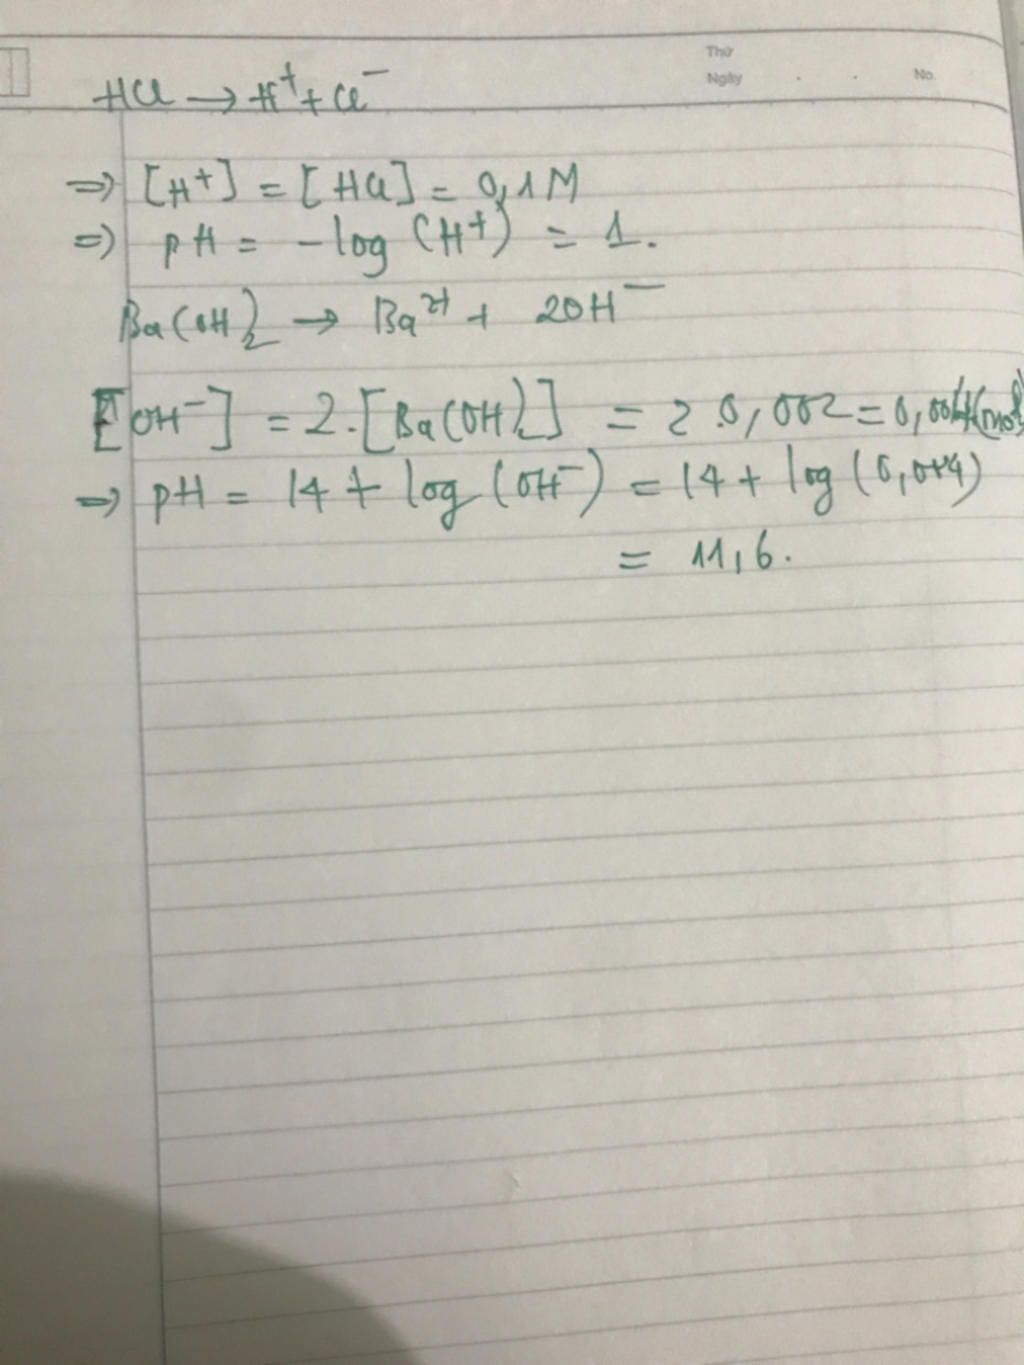 Thứ
Ngày . . No.
HCl → H⁺ + Cl⁻
⇒ [H⁺] = [HCl] = 0,1M
⇒ pH = -log (H⁺) = 1.
Ba(OH)₂ → Ba²⁺ + 2OH⁻
[OH⁻] = 2.[Ba(OH)₂] = 2.0,002 = 0,004 (mol)
⇒ pH = 14 + log (OH⁻) = 14 + log (0,004)
= 11,6.